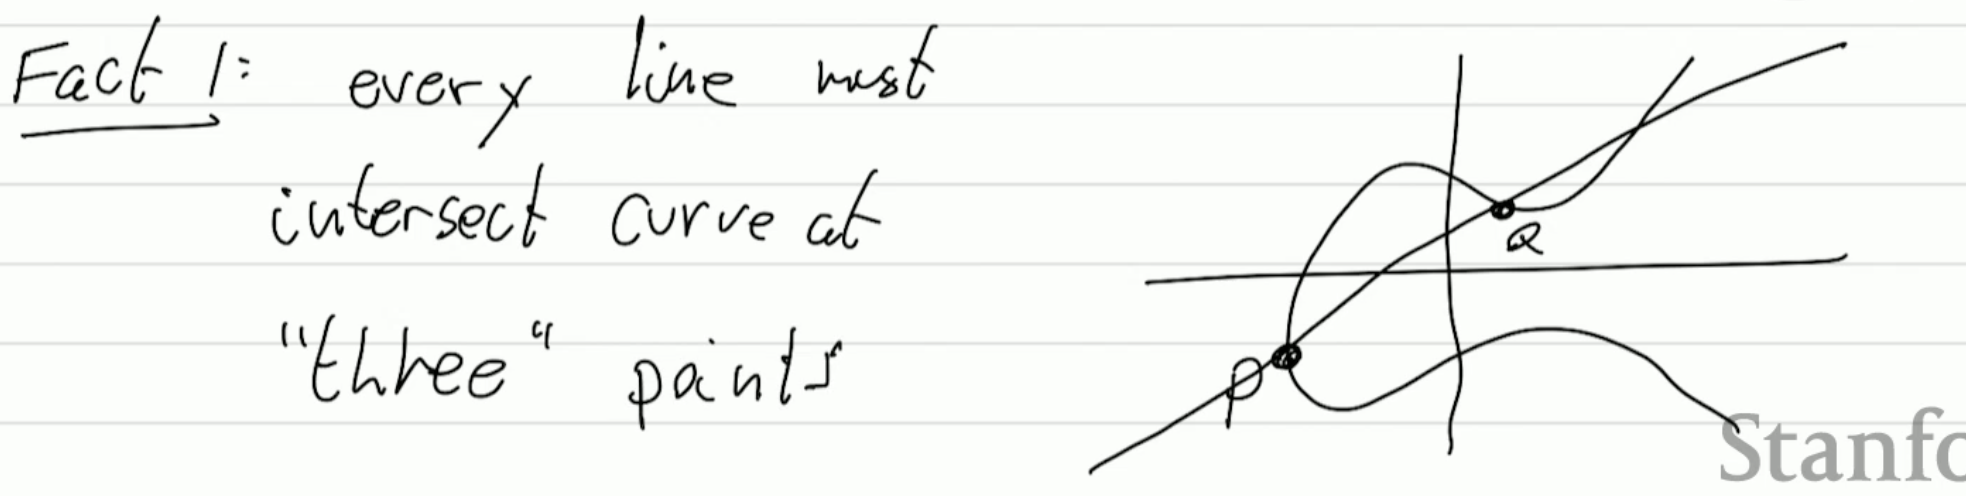 Fact 1: every line must
intersect curve at
"three" points
Q
P
Stanfo